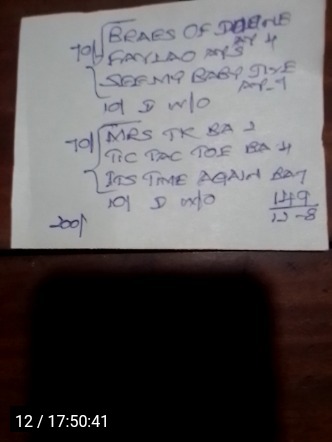 70/ BRAES OF DOUNE AP 4
FAYLAO AP 3
SEE MY BABY JIVE AP-7
10/ D W/O
70/ MRS TK BA 2
TIC TAC TOE BA 4
ITS TIME AGAIN BA 7
10/ D W/O
200/
149
12-8
12 / 17:50:41